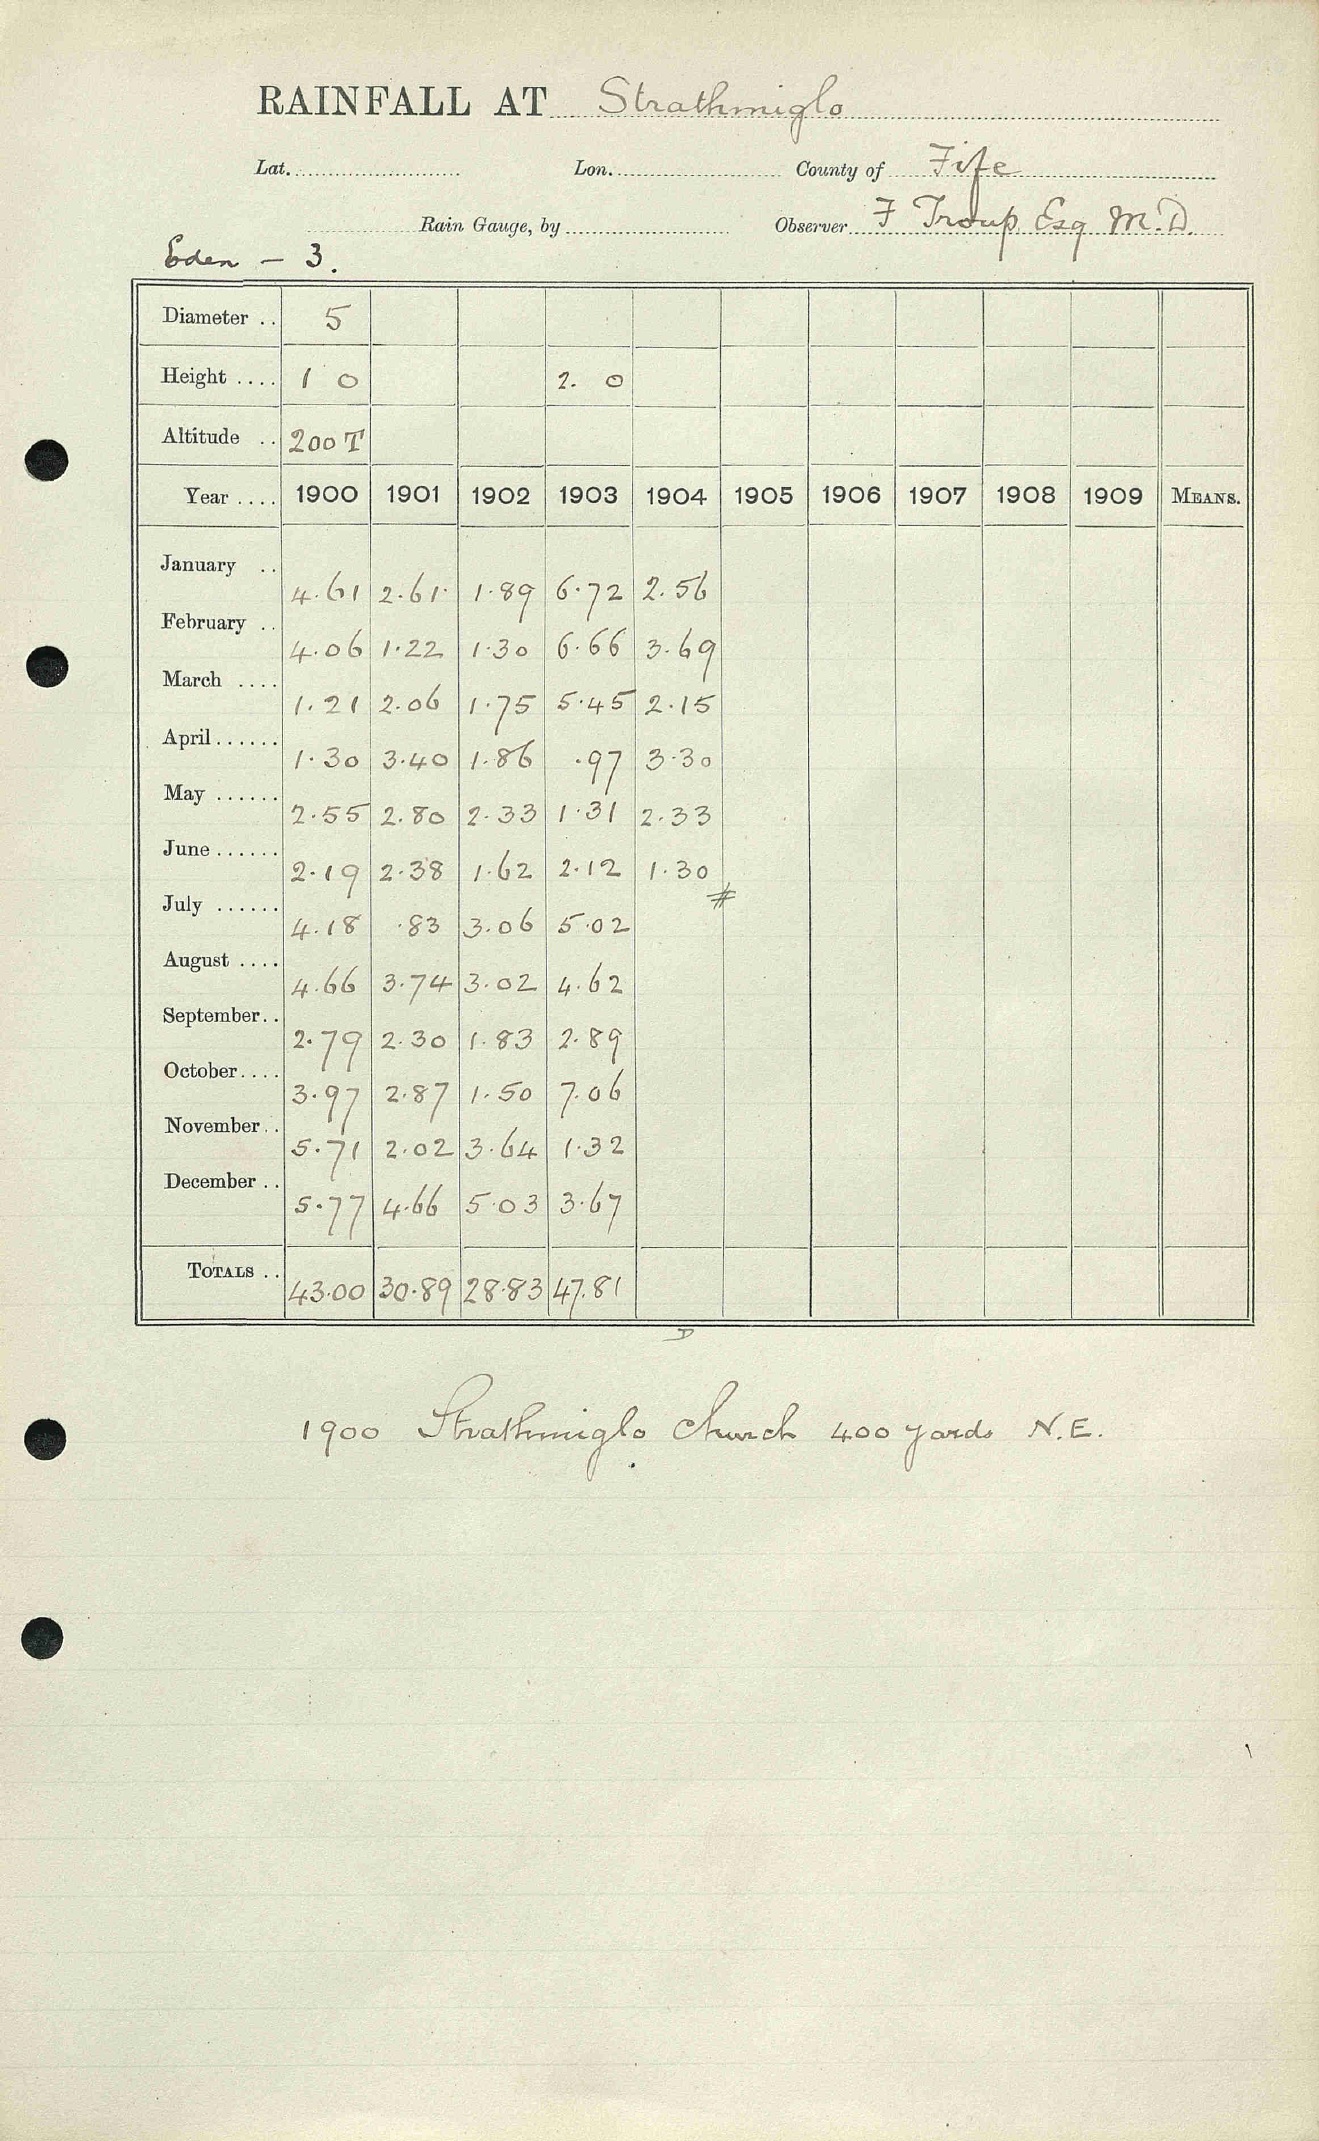 RAINFALL AT Strathmiglo
Lat. Lon. County of Fife
Rain Gauge, by Observer F Troup Esq M.D.
Eden - 3.
Diameter .. 5
Height .... 1 0 2. 0
Altitude .. 200 T
Year .... 1900 1901 1902 1903 1904 1905 1906 1907 1908 1909 MEANS.
January .. 4.61 2.61 1.89 6.72 2.56
February .. 4.06 1.22 1.30 6.66 3.69
March .... 1.21 2.06 1.75 5.45 2.15
April ...... 1.30 3.40 1.86 .97 3.30
May ...... 2.55 2.80 2.33 1.31 2.33
June ...... 2.19 2.38 1.62 2.12 1.30
July ...... 4.18 .83 3.06 5.02 #
August .... 4.66 3.74 3.02 4.62
September .. 2.79 2.30 1.83 2.89
October .... 3.97 2.87 1.50 7.06
November .. 5.71 2.02 3.64 1.32
December .. 5.77 4.66 5.03 3.67
TOTALS .. 43.00 30.89 28.83 47.81
D
1900 Strathmiglo Church 400 yards N.E.